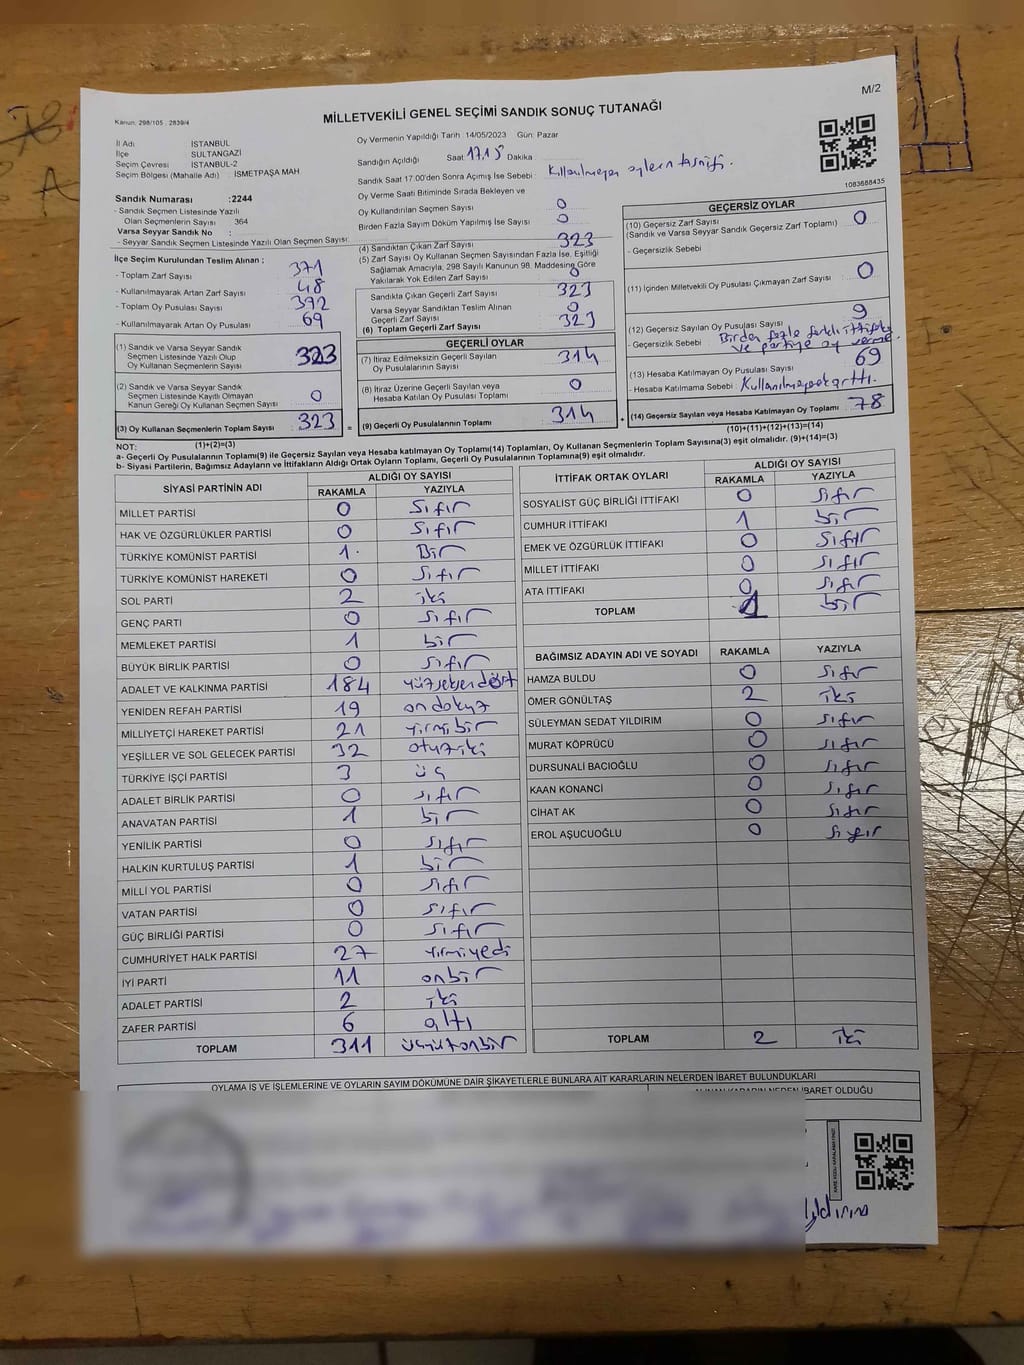 M/2
Kanun: 298/105 . 2839/4
MİLLETVEKİLİ GENEL SEÇİMİ SANDIK SONUÇ TUTANAĞI
İl Adı İSTANBUL
İlçe SULTANGAZİ
Seçim Çevresi İSTANBUL-2
Seçim Bölgesi (Mahalle Adı) : İSMETPAŞA MAH
Sandık Numarası :2244
- Sandık Seçmen Listesinde Yazılı
Olan Seçmenlerin Sayısı : 364
Varsa Seyyar Sandık No :
- Seyyar Sandık Seçmen Listesinde Yazılı Olan Seçmen Sayısı:
İlçe Seçim Kurulundan Teslim Alınan ;
- Toplam Zarf Sayısı 371
- Kullanılmayarak Artan Zarf Sayısı 48
- Toplam Oy Pusulası Sayısı 392
- Kullanılmayarak Artan Oy Pusulası 69
(1) Sandık ve Varsa Seyyar Sandık
Seçmen Listesinde Yazılı Olup
Oy Kullanan Seçmenlerin Sayısı 323
(2) Sandık ve Varsa Seyyar Sandık
Seçmen Listesinde Kayıtlı Olmayan
Kanun Gereği Oy Kullanan Seçmen Sayısı 0
(3) Oy Kullanan Seçmenlerin Toplam Sayısı 323
(1)+(2)=(3)
Oy Vermenin Yapıldığı Tarih : 14/05/2023 Gün: Pazar
Sandığın Açıldığı Saat 17.15 Dakika
Sandık Saat 17.00'den Sonra Açımış İse Sebebi : Kullanılmayan oyların tasnifi.
Oy Verme Saati Bitiminde Sırada Bekleyen ve
Oy Kullandırılan Seçmen Sayısı 0
Birden Fazla Sayım Döküm Yapılmış İse Sayısı 0
(4) Sandıktan Çıkan Zarf Sayısı 323
(5) Zarf Sayısı Oy Kullanan Seçmen Sayısından Fazla İse, Eşitliği
Sağlamak Amacıyla, 298 Sayılı Kanunun 98. Maddesine Göre
Yakılarak Yok Edilen Zarf Sayısı 0
Sandıkta Çıkan Geçerli Zarf Sayısı 323
Varsa Seyyar Sandıktan Teslim Alınan
Geçerli Zarf Sayısı 0
(6) Toplam Geçerli Zarf Sayısı 323
GEÇERLİ OYLAR
(7) İtiraz Edilmeksizin Geçerli Sayılan
Oy Pusulalarının Sayısı 314
(8) İtiraz Üzerine Geçerli Sayılan veya
Hesaba Katılan Oy Pusulası Toplamı 0
(9) Geçerli Oy Pusulalarının Toplamı 314
1083688435
GEÇERSİZ OYLAR
(10) Geçersiz Zarf Sayısı
(Sandık ve Varsa Seyyar Sandık Geçersiz Zarf Toplamı) 0
- Geçersizlik Sebebi
(11) İçinden Milletvekili Oy Pusulası Çıkmayan Zarf Sayısı 0
(12) Geçersiz Sayılan Oy Pusulası Sayısı 9
- Geçersizlik Sebebi : Birden fazla farklı ittifaka
ve partiye oy verme.
(13) Hesaba Katılmayan Oy Pusulası Sayısı 69
- Hesaba Katılmama Sebebi : Kullanılmayarak arttı.
(14) Geçersiz Sayılan veya Hesaba Katılmayan Oy Toplamı 78
(10)+(11)+(12)+(13)=(14)
NOT:
a- Geçerli Oy Pusulalarının Toplamı(9) ile Geçersiz Sayılan veya Hesaba katılmayan Oy Toplamı(14) Toplamları, Oy Kullanan Seçmenlerin Toplam Sayısına(3) eşit olmalıdır. (9)+(14)=(3)
b- Siyasi Partilerin, Bağımsız Adayların ve İttifakların Aldığı Ortak Oyların Toplamı, Geçerli Oy Pusulalarının Toplamına(9) eşit olmalıdır.
SİYASİ PARTİNİN ADI ALDIĞI OY SAYISI
RAKAMLA YAZIYLA
MİLLET PARTİSİ 0 Sıfır
HAK VE ÖZGÜRLÜKLER PARTİSİ 0 Sıfır
TÜRKİYE KOMÜNİST PARTİSİ 1. Bir
TÜRKİYE KOMÜNİST HAREKETİ 0 Sıfır
SOL PARTİ 2 iki
GENÇ PARTİ 0 Sıfır
MEMLEKET PARTİSİ 1 bir
BÜYÜK BİRLİK PARTİSİ 0 Sıfır
ADALET VE KALKINMA PARTİSİ 184 yüzseksendört
YENİDEN REFAH PARTİSİ 19 ondokuz
MİLLİYETÇİ HAREKET PARTİSİ 21 yirmibir
YEŞİLLER VE SOL GELECEK PARTİSİ 32 otuziki
TÜRKİYE İŞÇİ PARTİSİ 3 üç
ADALET BİRLİK PARTİSİ 0 sıfır
ANAVATAN PARTİSİ 1 bir
YENİLİK PARTİSİ 0 sıfır
HALKIN KURTULUŞ PARTİSİ 1 bir
MİLLİ YOL PARTİSİ 0 sıfır
VATAN PARTİSİ 0 sıfır
GÜÇ BİRLİĞİ PARTİSİ 0 sıfır
CUMHURİYET HALK PARTİSİ 27 yirmiyedi
İYİ PARTİ 11 onbir
ADALET PARTİSİ 2 iki
ZAFER PARTİSİ 6 altı
TOPLAM 311 üçyüzonbir
İTTİFAK ORTAK OYLARI ALDIĞI OY SAYISI
RAKAMLA YAZIYLA
SOSYALİST GÜÇ BİRLİĞİ İTTİFAKI 0 sıfır
CUMHUR İTTİFAKI 1 bir
EMEK VE ÖZGÜRLÜK İTTİFAKI 0 sıfır
MİLLET İTTİFAKI 0 sıfır
ATA İTTİFAKI 0 sıfır
TOPLAM 1 bir
BAĞIMSIZ ADAYIN ADI VE SOYADI RAKAMLA YAZIYLA
HAMZA BULDU 0 sıfır
ÖMER GÖNÜLTAŞ 2 iki
SÜLEYMAN SEDAT YILDIRIM 0 sıfır
MURAT KÖPRÜCÜ 0 sıfır
DURSUNALİ BACIOĞLU 0 sıfır
KAAN KONANCİ 0 sıfır
CİHAT AK 0 sıfır
EROL AŞUCUOĞLU 0 sıfır
TOPLAM 2 iki
OYLAMA İŞ VE İŞLEMLERİNE VE OYLARIN SAYIM DÖKÜMÜNE DAİR ŞİKAYETLERLE BUNLARA AİT KARARLARIN NELERDEN İBARET BULUNDUKLARI
ALINAN KARARIN NEDEN İBARET OLDUĞU